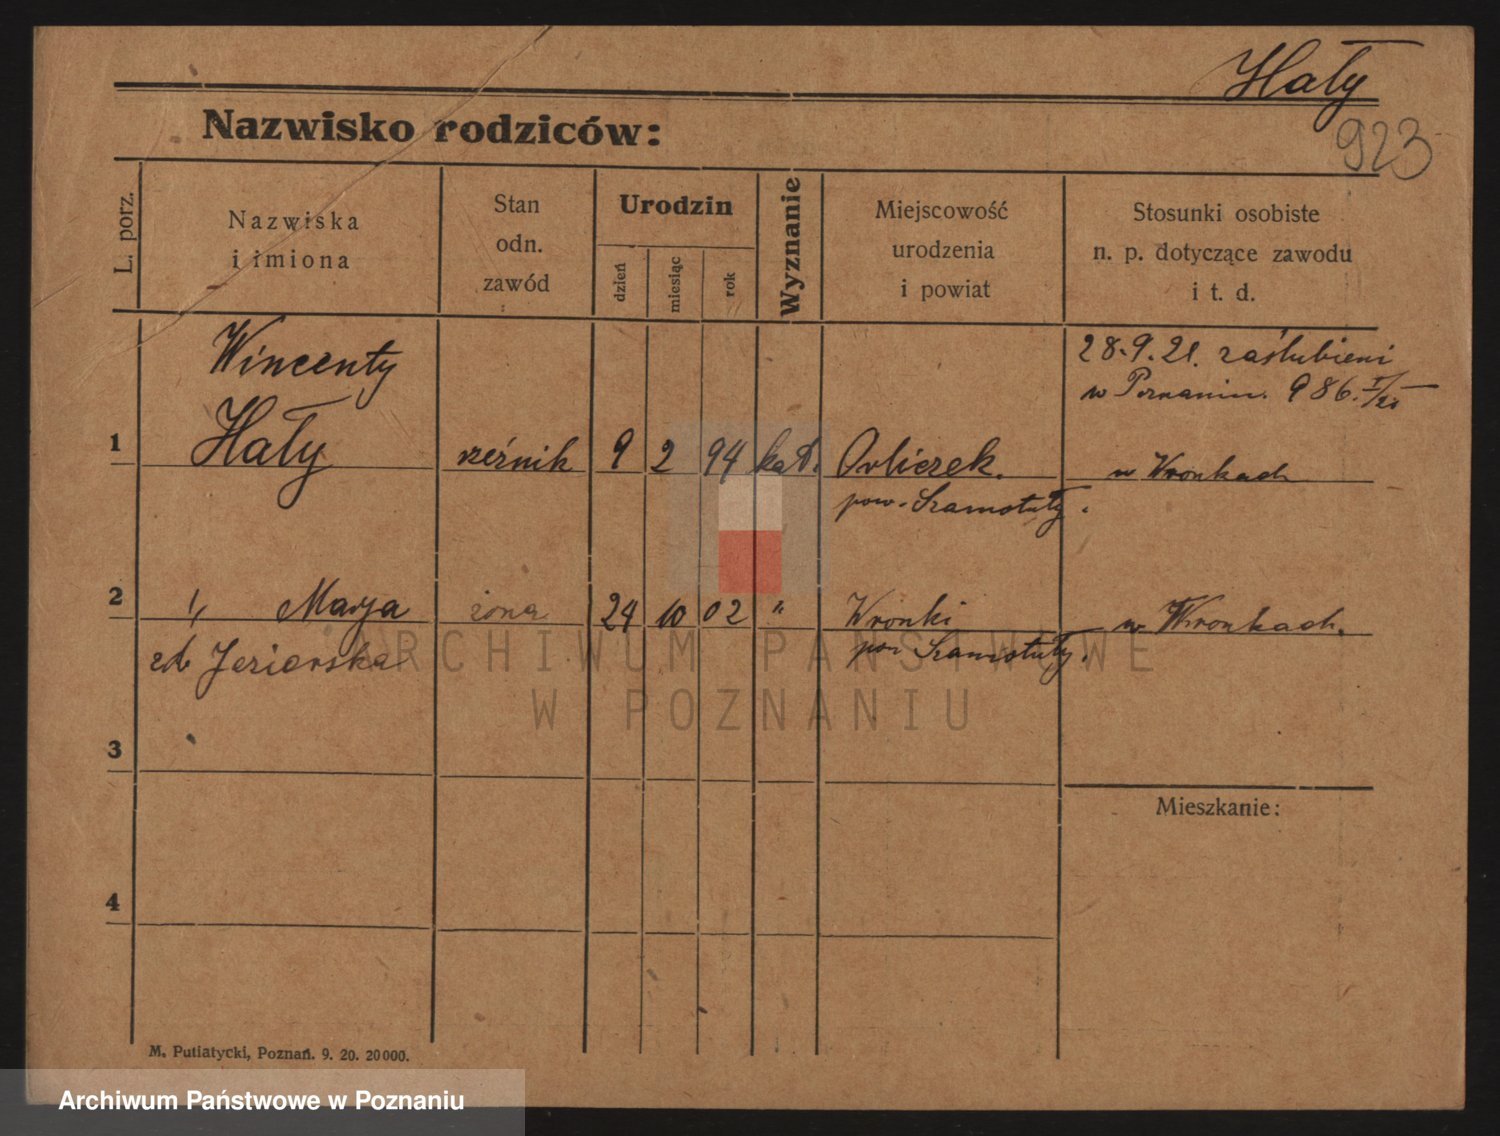 Hały
923
Nazwisko rodziców:
L. porz.
Nazwiska
i imiona
Stan
odn.
zawód
Urodzin
dzień
miesiąc
rok
Wyznanie
Miejscowość
urodzenia
i powiat
Stosunki osobiste
n. p. dotyczące zawodu
i t. d.
28.9.21. zaślubieni
w Poznaniu. 986.
Wincenty
1 Hały rzeźnik 9 2 94 kat. Orliczek. w Wronkach
pow. Szamotuły.
2 " Marja żona 24 10 02 " Wronki w Wronkach.
zd Jeziorska pow Szamotuły.
3
Mieszkanie:
4
M. Putiatycki, Poznań. 9. 20. 20000.
ARCHIWUM PAŃSTWOWE
W POZNANIU
Archiwum Państwowe w Poznaniu